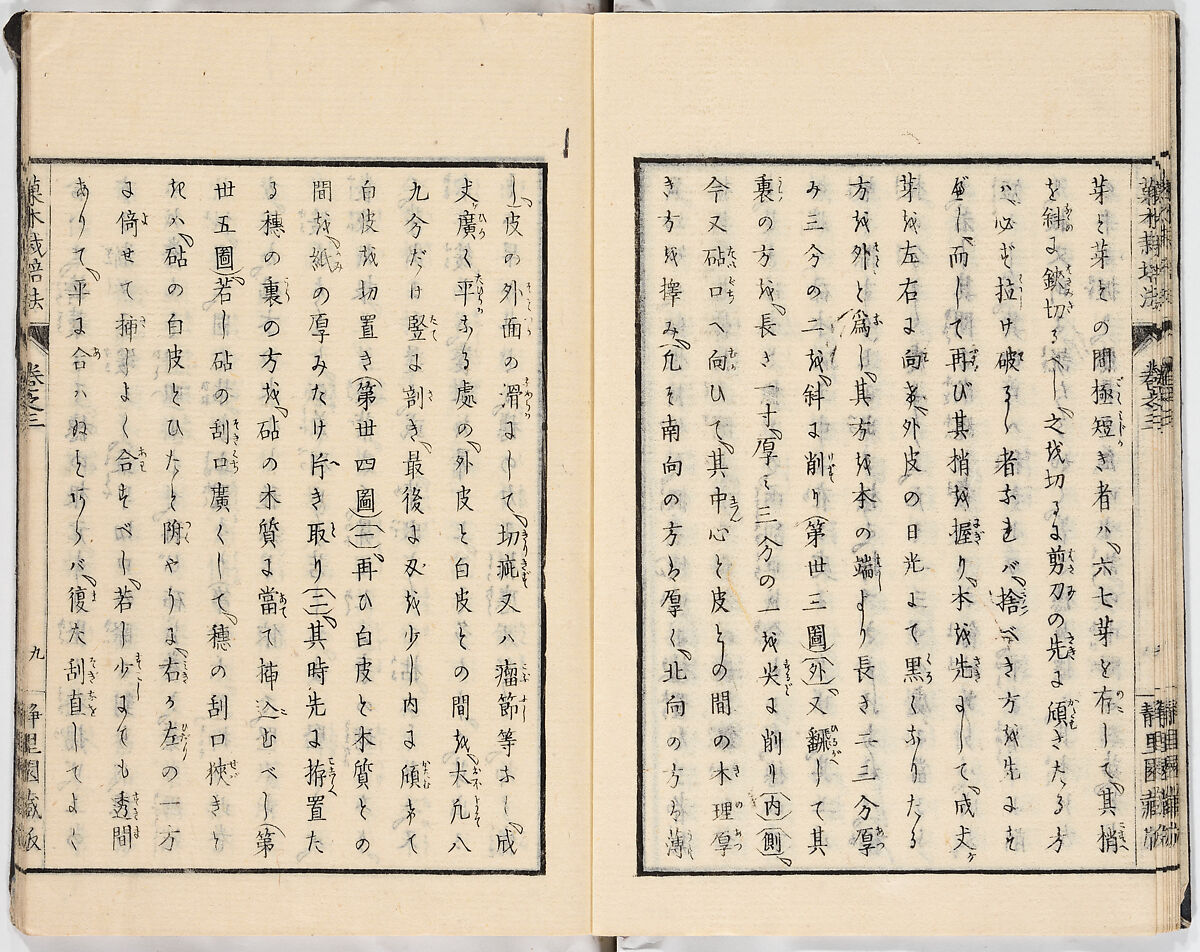 菓木栽培法
卷之三
靜里園藏版
芽と芽との間極短き者ハ六七芽を存して其梢
を斜に鋏切るべし之を切るに剪刀の先に傾きたる方
ハ必ず拉け破るゝ者なれバ捨べき方を先にす
べし而して再び其梢を握り本を先にして成丈
芽を左右に向ま外皮の日光にて黒くなりたる
方を外と爲し其方を本の端より長き二三分厚
み三分の二を斜に削り(第廿三圖)(外)又翻して其
裏の方を長き一寸厚ミ三分の一を尖に削り(内)(側)
今又砧口へ向ひて其中心と皮との間の木理厚
き方を擇み凡そ南向の方ハ厚く北向の方ハ薄
し皮の外面の滑にして切疵又ハ瘤節等なく成
丈廣く平なる處の外皮と白皮との間を大凡八
九分だけ竪に剖き最後に刄を少し内に傾けて
白皮を切置き(第廿四圖)(一)再ひ白皮と木質との
間を紙の厚みたけ片き取り(二)其時先に拵置た
る穗の裏の方を砧の木質に當て揷込むべし(第
廿五圖)若し砧の刮口廣くして穗の刮口狹きと
きハ砧の白皮とひたと附やうに右か左の一方
に倚せて揷よく合すべし若し少にても透間
ありて平に合ハぬとならバ復た刮直してよく
菓木栽培法
卷之三
九
靜里園藏版